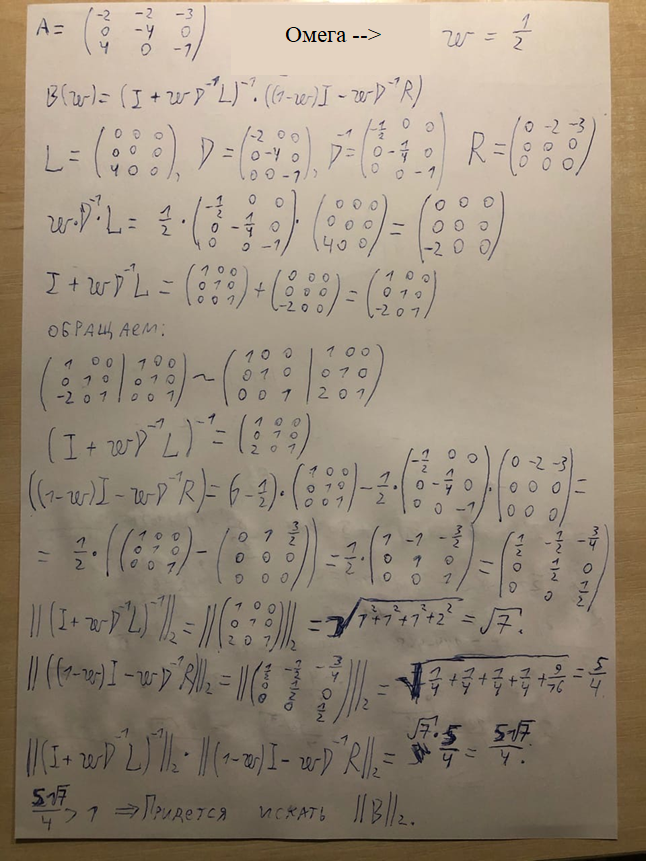 A = (-2 -2 -3; 0 -4 0; 4 0 -1) Омега --> w = 1/2
B(w) = (I + wD⁻¹L)⁻¹·((1-w)I - wD⁻¹R)
L = (0 0 0; 0 0 0; 4 0 0), D = (-2 0 0; 0 -4 0; 0 0 -1), D⁻¹ = (-1/2 0 0; 0 -1/4 0; 0 0 -1) R = (0 -2 -3; 0 0 0; 0 0 0)
w·D⁻¹·L = 1/2·(-1/2 0 0; 0 -1/4 0; 0 0 -1)·(0 0 0; 0 0 0; 4 0 0) = (0 0 0; 0 0 0; -2 0 0)
I + wD⁻¹L = (1 0 0; 0 1 0; 0 0 1) + (0 0 0; 0 0 0; -2 0 0) = (1 0 0; 0 1 0; -2 0 1)
ОБРАЩАЕМ:
(1 0 0 | 1 0 0; 0 1 0 | 0 1 0; -2 0 1 | 0 0 1) ~ (1 0 0 | 1 0 0; 0 1 0 | 0 1 0; 0 0 1 | 2 0 1)
(I + wD⁻¹L)⁻¹ = (1 0 0; 0 1 0; 2 0 1)
((1-w)I - wD⁻¹R) = (1-1/2)·(1 0 0; 0 1 0; 0 0 1) - 1/2·(-1/2 0 0; 0 -1/4 0; 0 0 -1)·(0 -2 -3; 0 0 0; 0 0 0) =
= 1/2·((1 0 0; 0 1 0; 0 0 1) - (0 1 3/2; 0 0 0; 0 0 0)) = 1/2·(1 -1 -3/2; 0 1 0; 0 0 1) = (1/2 -1/2 -3/4; 0 1/2 0; 0 0 1/2)
||(I + wD⁻¹L)⁻¹||₂ = ||(1 0 0; 0 1 0; 2 0 1)||₂ = √(1²+1²+1²+2²) = √7.
||((1-w)I - wD⁻¹R)||₂ = ||(1/2 -1/2 -3/4; 0 1/2 0; 0 0 1/2)||₂ = √(1/4 + 1/4 + 1/4 + 1/4 + 9/16) = 5/4
||(I + wD⁻¹L)⁻¹||₂ · ||(1-w)I - wD⁻¹R||₂ = √7·5/4 = 5√7/4.
5√7/4 > 1 ⇒ Придется искать ||B||₂.